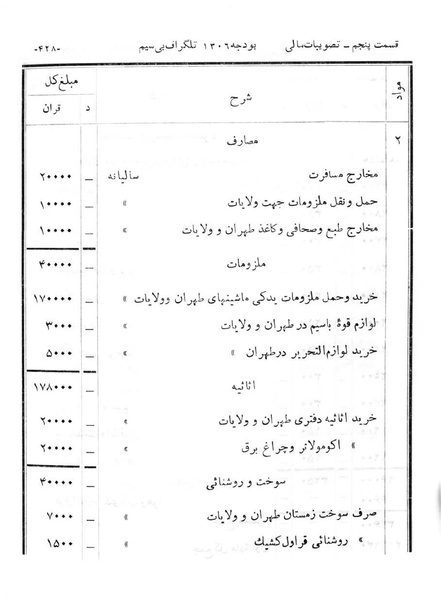 قسمت پنجم – تصویبات مالی بودجه ۱۳۰۶ تلگراف بی سیم -۴۲۸-
مواد شرح مبلغ کل
د قران
۲ مصارف
مخارج مسافرت سالیانه – ۲۰۰۰۰
حمل و نقل ملزومات جهت ولایات » – ۱۰۰۰۰
مخارج طبع و صحافی و کاغذ طهران و ولایات » – ۱۰۰۰۰
ملزومات – ۴۰۰۰۰
خرید و حمل ملزومات یدکی ماشینهای طهران و ولایات » – ۱۷۰۰۰۰
لوازم قوهٔ باسیم در طهران و ولایات » – ۳۰۰۰
خرید لوازم التحریر در طهران » » – ۵۰۰۰
اثاثیه – ۱۷۸۰۰۰
خرید اثاثیه دفتری طهران و ولایات » – ۲۰۰۰۰
» اکومولاتر و چراغ برق » – ۲۰۰۰۰
سوخت و روشنائی – ۴۰۰۰۰
صرف سوخت زمستان طهران و ولایات » – ۷۰۰۰
» روشنائی قراول کشیک » – ۱۵۰۰